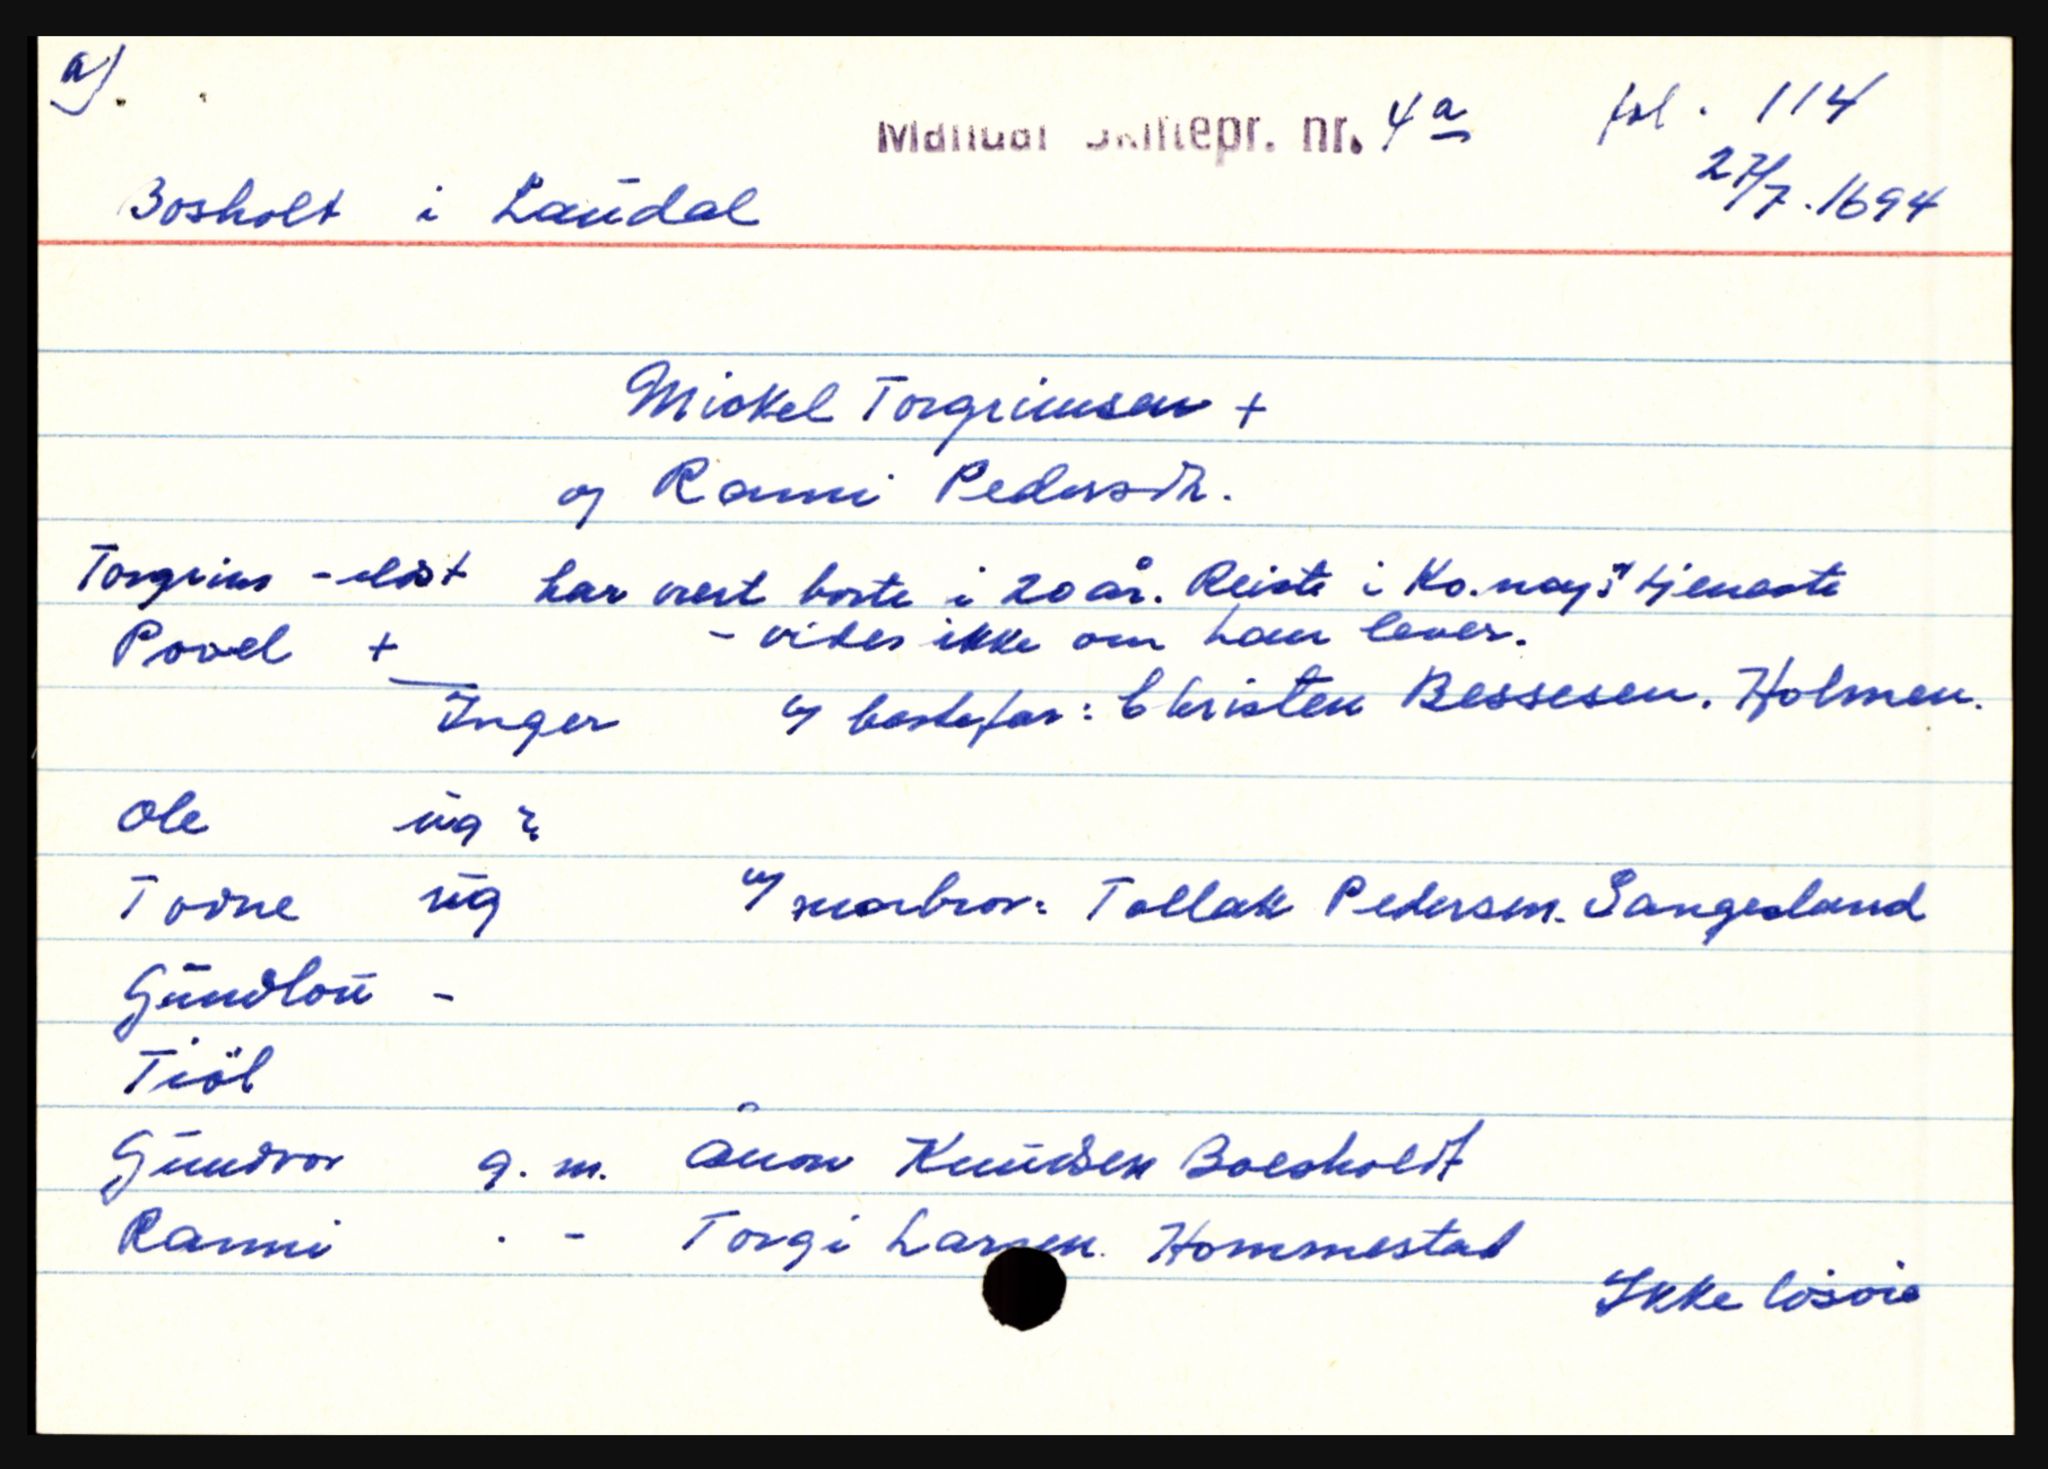 a).
Mandal Skiftepr. nr. 4a fol. 114
27/7.1694
Bosholt i Laudal
Mickel Torgrimsen +
og Ranni Pedersdtr.
Torgrim - elst har vært borte i 20 år. Reiste i Ko. nays tjeneste
Povel + - vides ikke om han lever.
Inger bestefar: Christen Bessesen. Holmen.
Ole ug ?
Tovne ug morbror: Tollak Pedersen. Sangesland
Gundlou -
Tiöl
Gundvor g. m. Ånon Knudsen Boesholdt
Ranni . - Torgi Larsen. Hommestad
Ikke løsøre